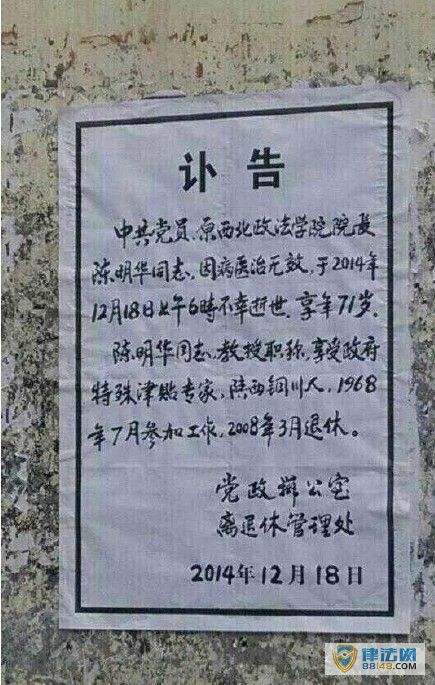 讣告
中共党员、原西北政法学院院長
陈明华同志，因病医治无效，于2014年
12月18日上午6時不幸逝世，享年71岁。
陈明华同志，教授职称，享受政府
特殊津贴专家，陕西铜川人，1968
年7月参加工作，2008年3月退休。
党政辦公室
离退休管理处
2014年12月18日
律法网
88148.COM